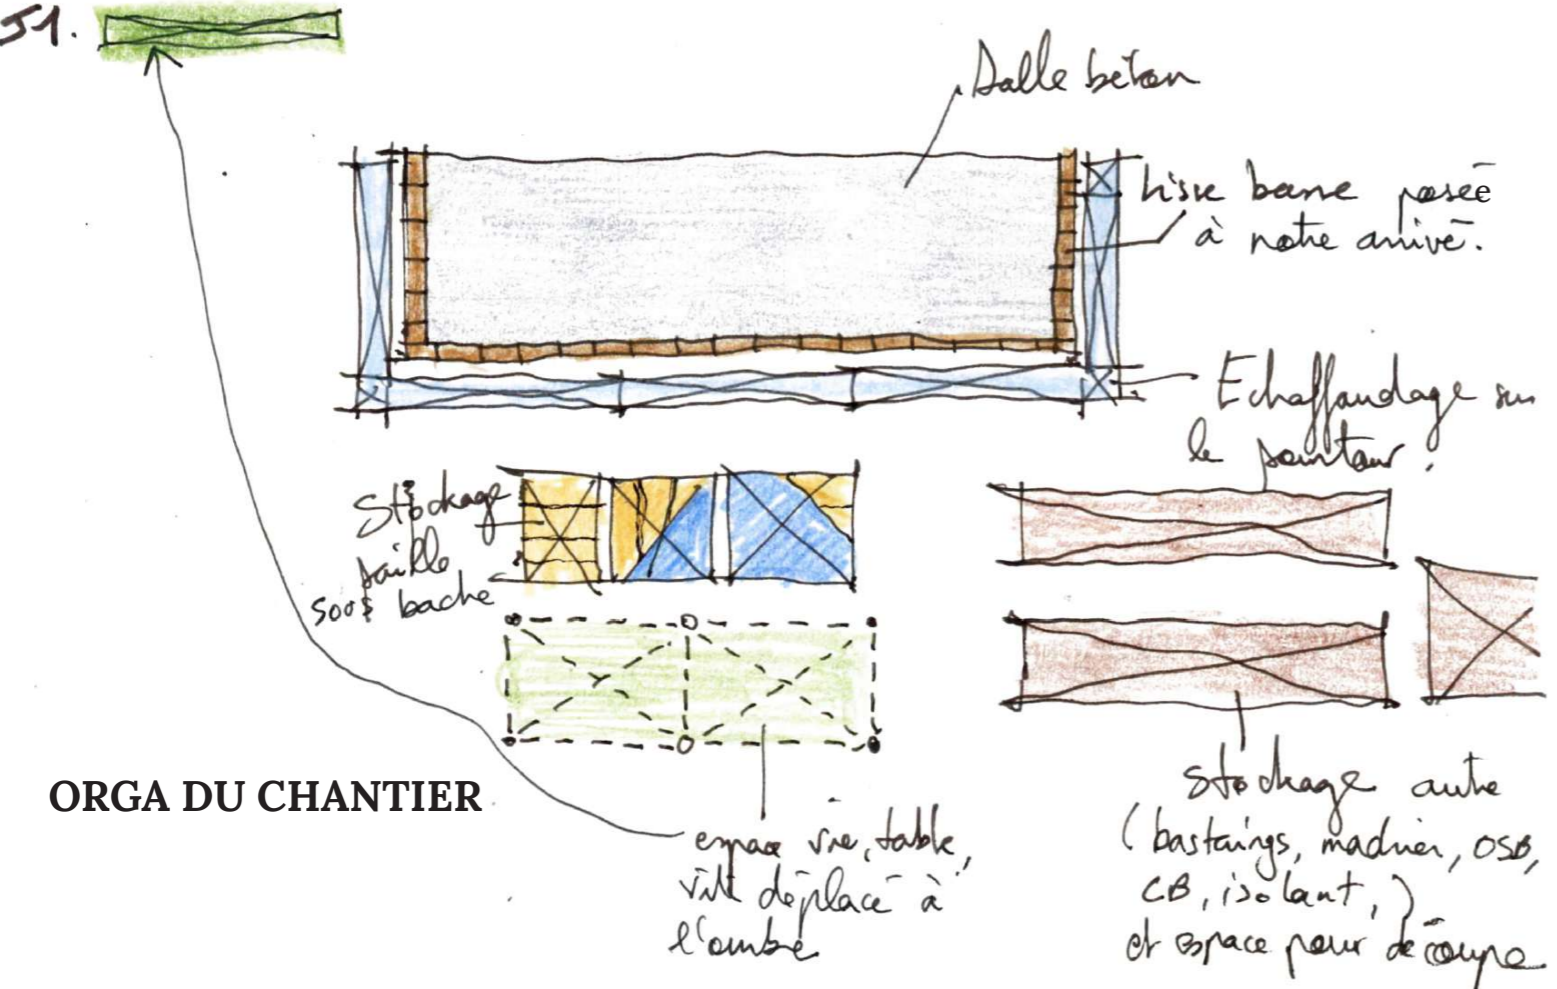 J1.
Dalle béton
Lisse basse posée
à notre arrivé.
Echaffaudage sur
le pourtour.
Stockage
paille
sous bache
ORGA DU CHANTIER
espace vie, table,
vite déplacé à
l'ombre
Stockage autre
(bastaings, madrier, OSB,
CB, isolant,)
et espace pour découpe